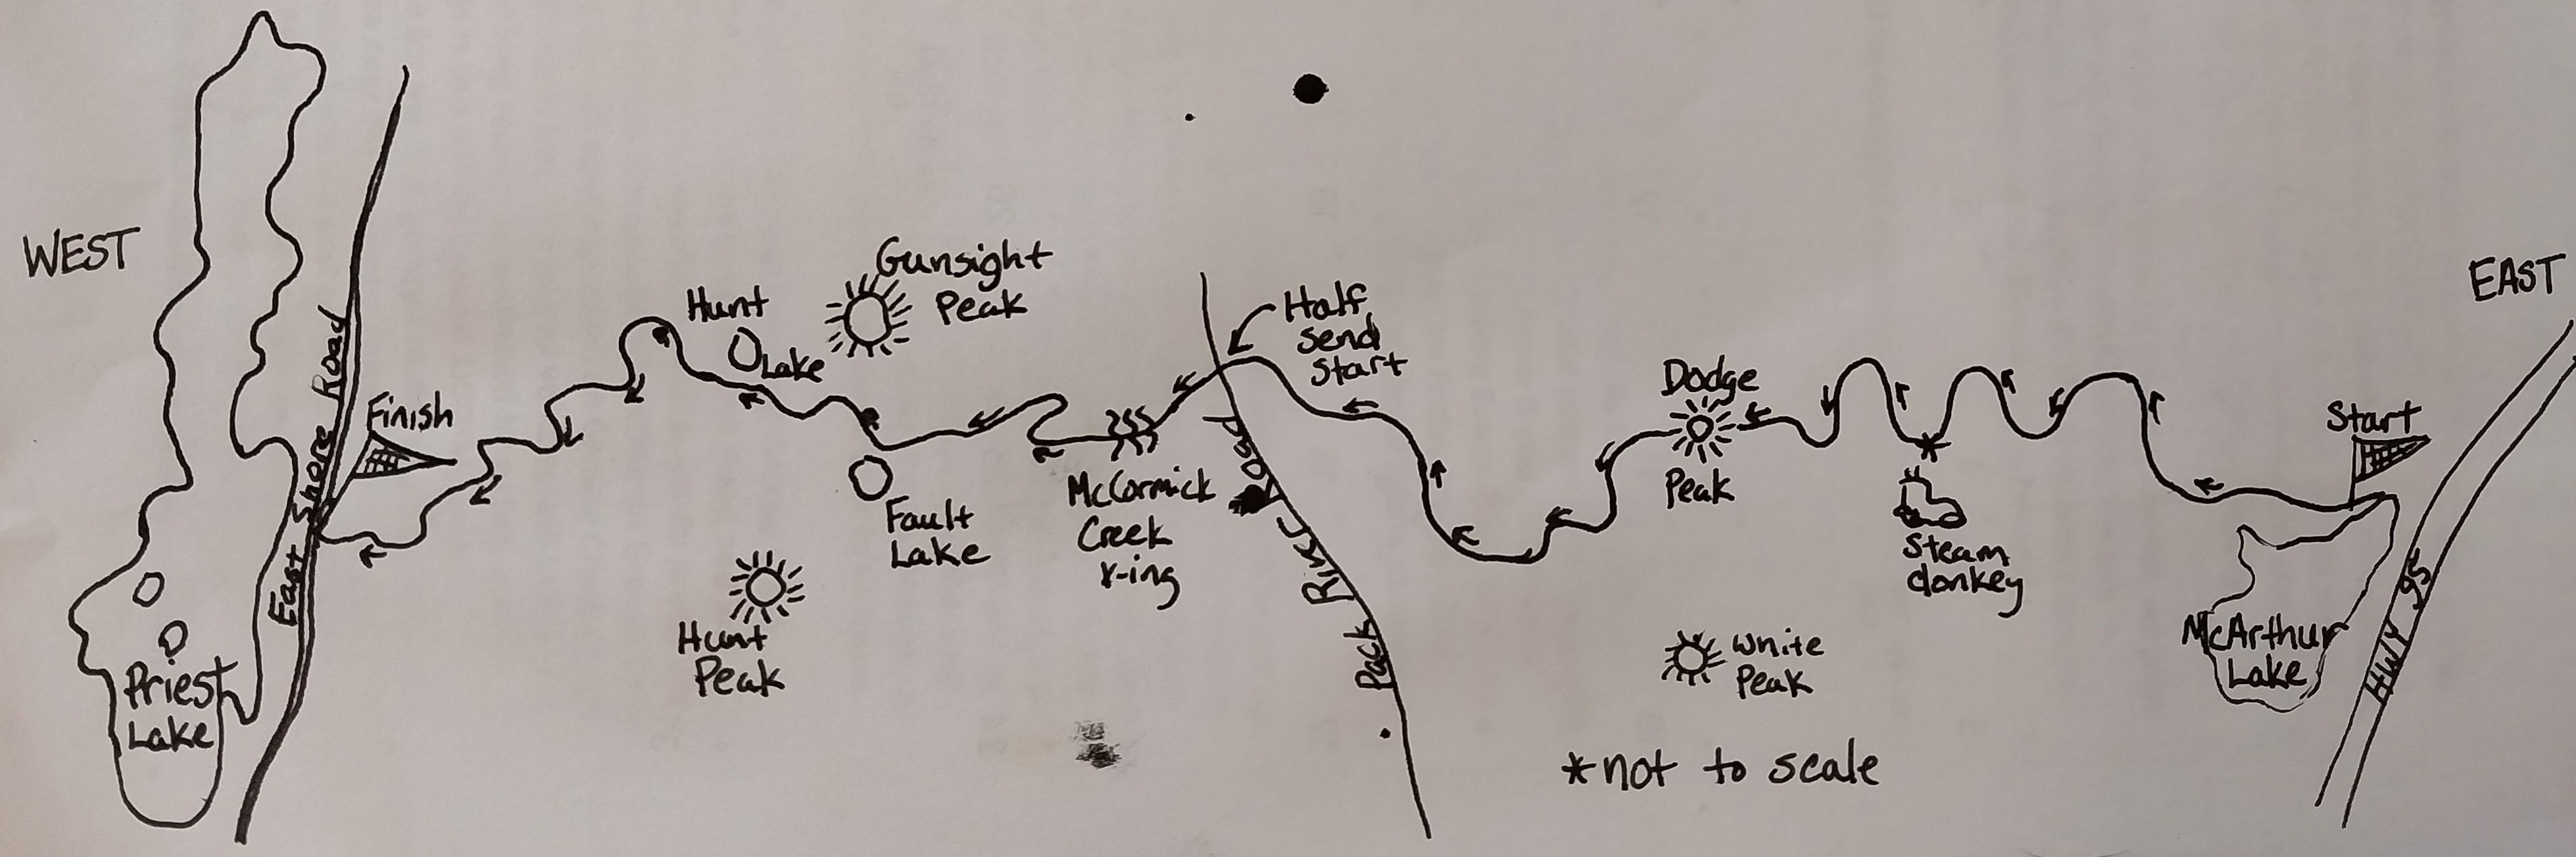 WEST
East Shore Road
Finish
Priest
Lake
Hunt
Lake
Gunsight
Peak
Hunt
Peak
Fault
Lake
McCormick
Creek
x-ing
Half
send
start
Pack River Road
Dodge
Peak
White
Peak
Steam
donkey
*not to scale
Start
McArthur
Lake
HWY 95
EAST